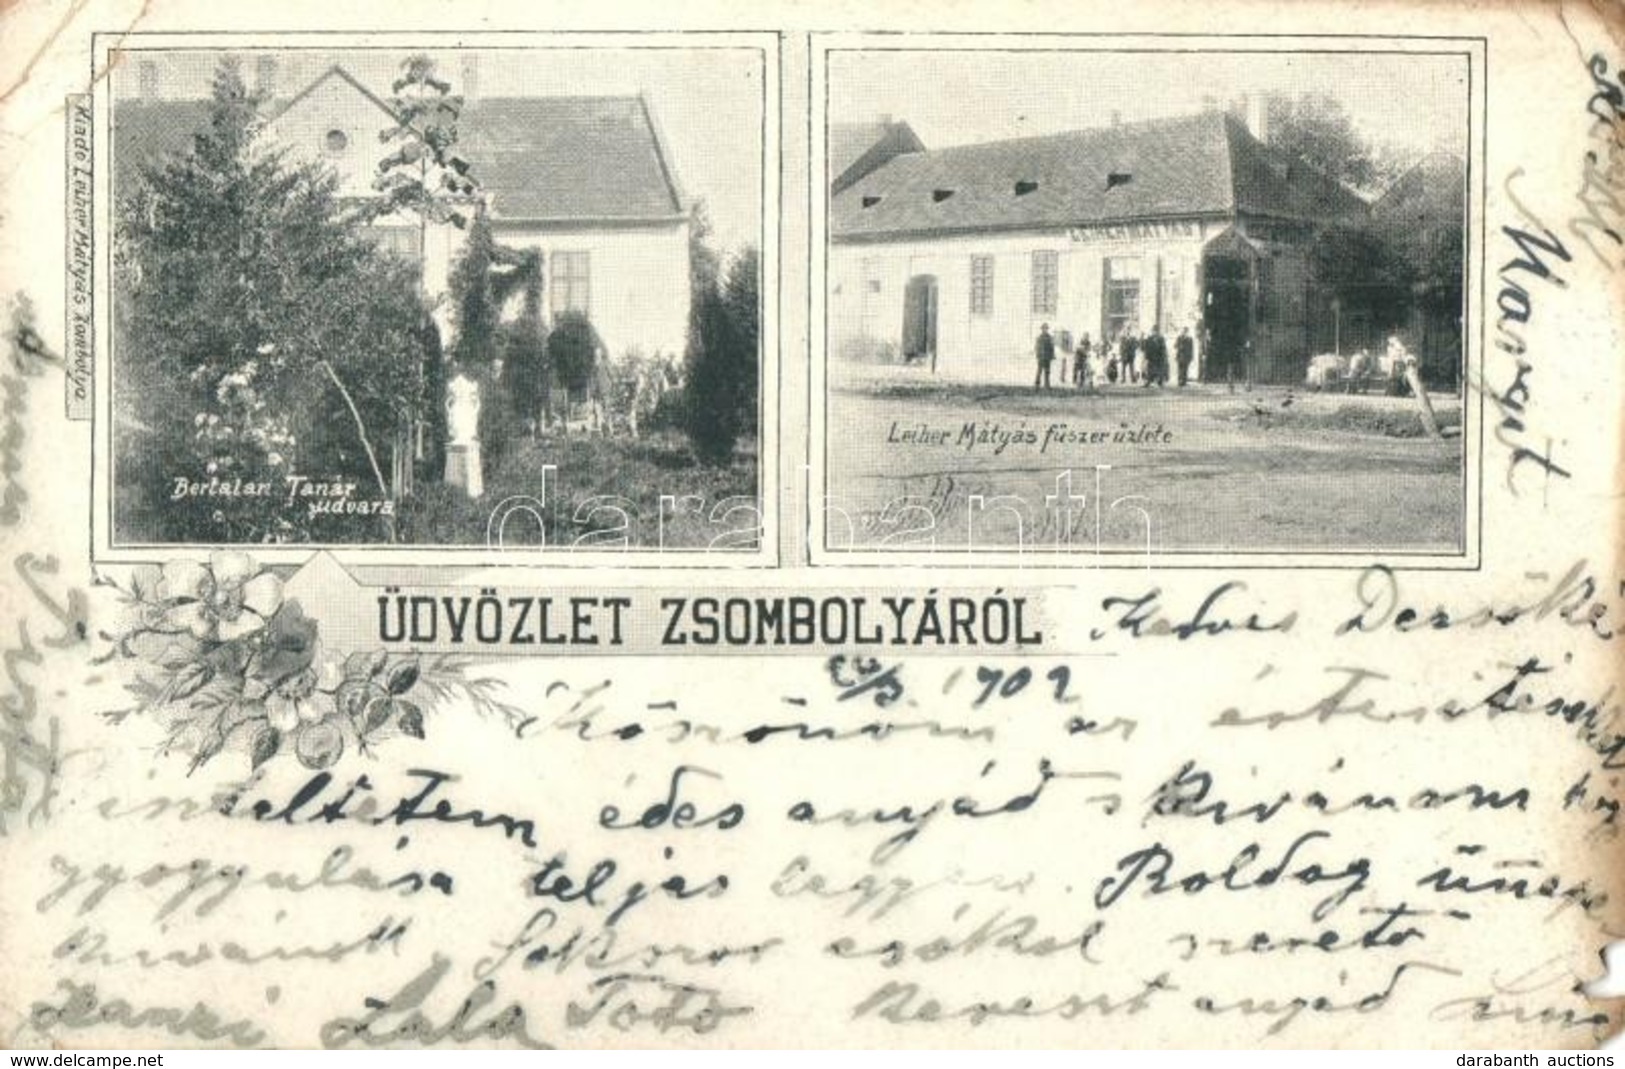 Kiadó Leiher Mátyás Zsombolya
Bertalan Tanár
udvara
LEIHER MÁTYÁS
Leiher Mátyás fűszer üzlete
darabanth
ÜDVÖZLET ZSOMBOLYÁRÓL
Kedves Dezsőke
26/3 1902
Köszönöm az értesitésed
édes anyád s kivánom hogy
gyogyulása teljes legyen. Boldog ünnepe
kivánok. Sokszor csókol szerető
Lala Toto kereszt anyád
Margit
darabanth auctions